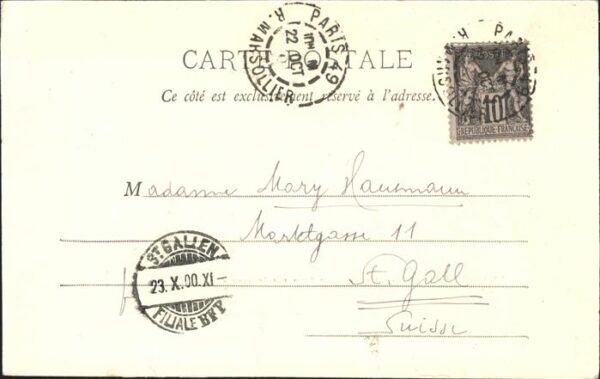 CARTE POSTALE
Ce côté est exclusivement réservé à l'adresse.
PARIS 49
R. MARSOLLIER
22 OCT
10
REPUBLIQUE FRANÇAISE
Madame Mary Hausmann
Marktgasse 11
St. Gall
Suisse
ST. GALLEN
23. X. 00. XI-
FILIALE BFT